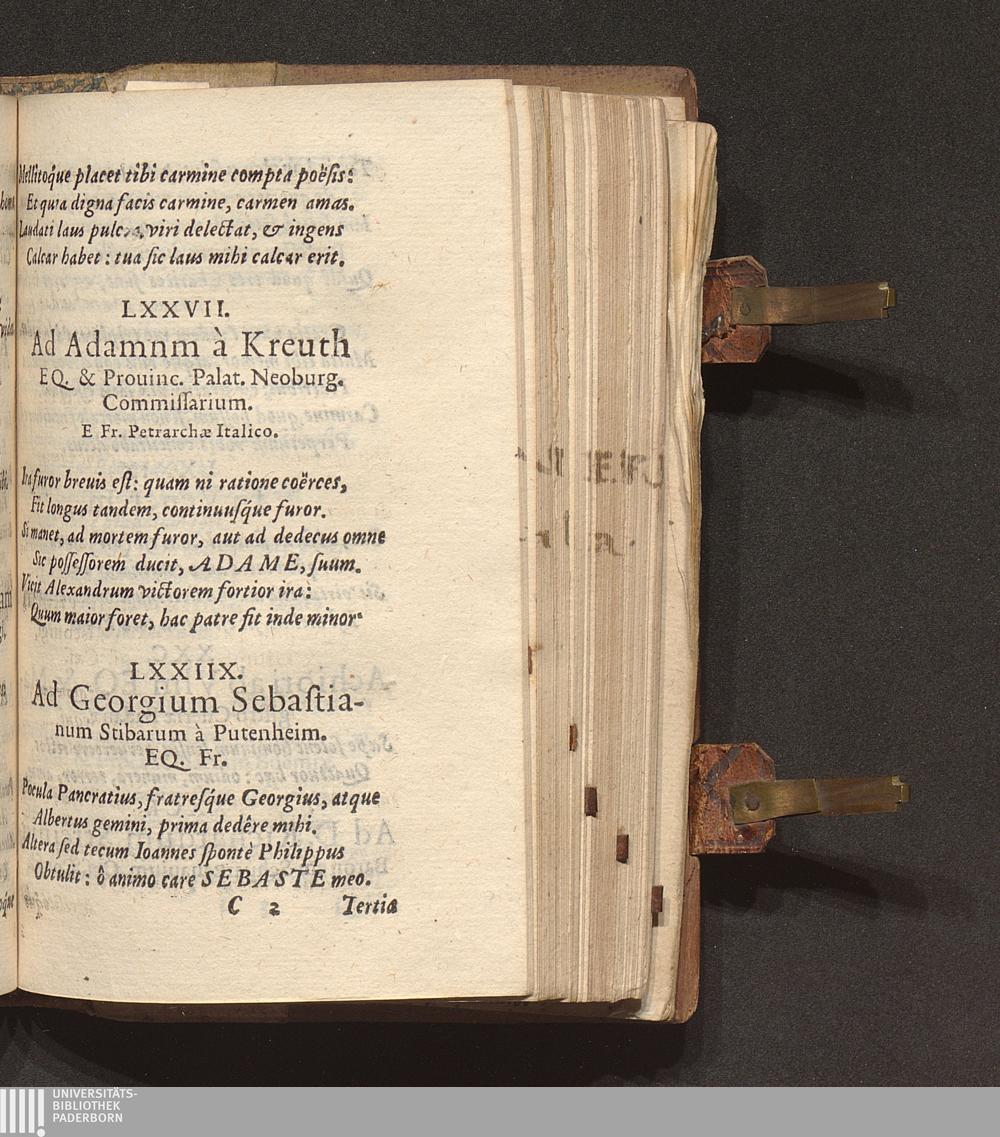 Mellitoq́ue placet tibi carmine compta poësis:
Et quia digna facis carmine, carmen amas.
Laudati laus pulcra, viri delectat, & ingens
Calcar habet: tua sic laus mihi calcar erit.
LXXVII.
Ad Adamnm à Kreuth
EQ. & Prouinc. Palat. Neoburg.
Commiſſarium.
E Fr. Petrarchæ Italico.
Ira furor breuis eſt: quam ni ratione coërces,
Fit longus tandem, continuuſq́ue furor.
Si manet, ad mortem furor, aut ad dedecus omne
Sic poſſeſſorem ducit, ADAME, ſuum.
Vicit Alexandrum victorem fortior ira:
Quum maior foret, hac patre fit inde minor.
LXXIIX.
Ad Georgium Sebaſtia-
num Stibarum à Putenheim.
EQ. Fr.
Pocula Pancratius, fratreſq́ue Georgius, atque
Albertus gemini, prima dedêre mihi.
Altera ſed tecum Ioannes ſpontè Philippus
Obtulit: ô animo care SEBASTE meo.
C 2 Tertia
UNIVERSITÄTS-
BIBLIOTHEK
PADERBORN